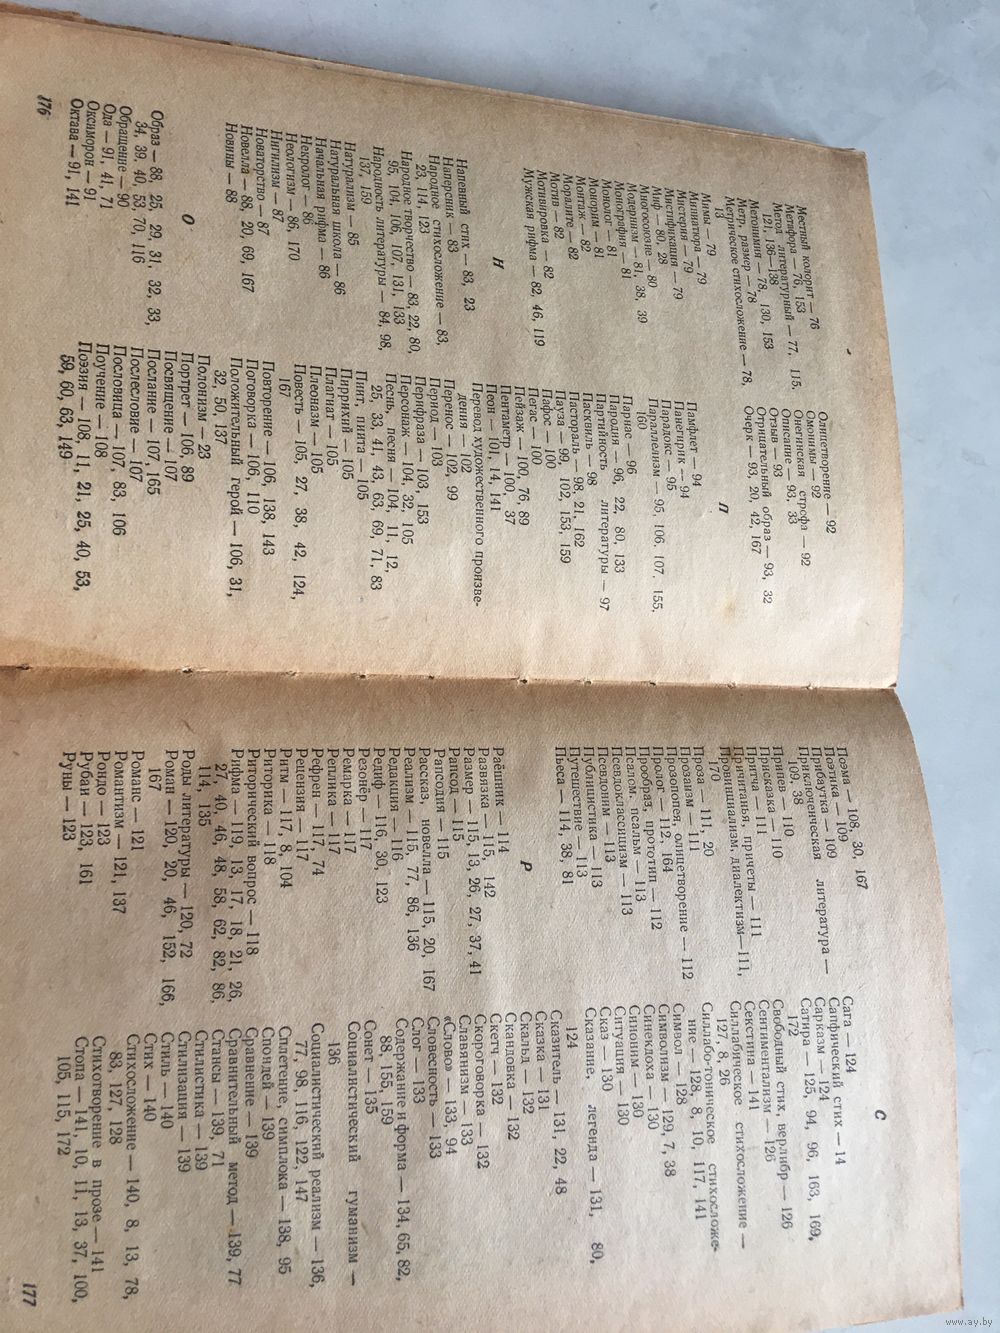 Местный колорит — 76
Метафора — 76, 153
Метод литературный — 77, 115,
121, 136—138
Метонимия — 78, 130, 153
Метр, размер — 78
Метрическое стихосложение — 78,
13
Мимы — 79
Миниатюра — 79
Мистерия — 79
Мистификация — 79
Миф — 80, 28
Многосоюзие — 80
Модернизм — 81, 38, 39
Монография — 81
Монолог — 81
Монорим — 81
Монтаж — 82
Моралите — 82
Мотив — 82
Мотивировка — 82
Мужская рифма — 82, 46, 119
Н
Напевный стих — 83, 23
Наперсник — 83
Народное стихосложение — 83,
23, 114, 123
Народное творчество — 83, 22, 80,
95, 104, 106, 107, 131, 133
Народность литературы — 84, 98,
137, 159
Натурализм — 85
Натуральная школа — 86
Начальная рифма — 86
Некролог — 86
Неологизм — 86, 170
Нигилизм — 87
Новаторство — 87
Новелла — 88, 20, 69, 167
Новины — 88
О
Образ — 88, 25, 29, 31, 32, 33,
34, 39, 40, 53, 70, 116
Обращение — 90
Ода — 91, 41, 71
Оксиморон — 91
Октава — 91, 141
176
Олицетворение — 92
Омонимы — 92
Онегинская строфа — 92
Описание — 93, 33
Отзыв — 93
Отрицательный образ — 93, 32
Очерк — 93, 20, 42, 167
П
Памфлет — 94
Панегирик — 94
Парадокс — 95
Параллелизм — 95, 106, 107, 155,
160
Парнас — 96
Пародия — 96, 22, 80, 133
Партийность литературы — 97
Пасквиль — 98
Пастораль — 98, 21, 162
Пауза — 99, 102, 153, 159
Пафос — 100
Пегас — 100
Пейзаж — 100, 76, 89
Пентаметр — 100, 37
Пеон — 101, 14, 141
Перевод художественного произве-
дения — 102
Перенос — 102, 99
Период — 103
Перифраза — 103, 153
Персонаж — 104, 32, 105
Песнь, песня — 104, 11, 12,
25, 33, 41, 43, 63, 69, 71, 83
Пиит, пиита — 105
Пиррихий — 105
Плагиат — 105
Плеоназм — 105
Повесть — 105, 27, 38, 42, 124,
167
Повторение — 106, 138, 143
Поговорка — 106, 110
Положительный герой — 106, 31,
32, 50, 137
Полонизм — 23
Портрет — 106, 89
Посвящение — 107
Послание — 107, 165
Послесловие — 107
Пословица — 107, 83, 106
Поучение — 108
Поэзия — 108, 11, 21, 25, 40, 53,
59, 60, 63, 149
Поэма — 108, 30, 167
Поэтика — 109
Прибаутка — 109
Приключенческая литература —
109, 38
Припев — 110
Присказка — 110
Притча — 111
Причитанья, причеты — 111
Провинциализм, диалектизм — 111,
170
Проза — 111, 20
Прозаизм — 111
Прозопопея, олицетворение — 112
Пролог — 112, 164
Прообраз, прототип — 112
Псалом, псальм — 113
Псевдоклассицизм — 113
Псевдоним — 113
Публицистика — 113
Путешествие — 113
Пьеса — 114, 38, 81
Р
Раёшник — 114
Развязка — 115, 142
Размер — 115, 13, 26, 27, 37, 41
Рапсод — 115
Рапсодия — 115
Рассказ, новелла — 115, 20, 167
Реализм — 115, 77, 86, 136
Редакция — 116
Редиф — 116, 30, 123
Резонёр — 117
Ремарка — 117
Реплика — 117
Рефрен — 117, 74
Рецензия — 117
Ритм — 117, 8, 104
Риторика — 118
Риторический вопрос — 118
Рифма — 119, 13, 17, 18, 21, 26,
27, 40, 46, 48, 58, 62, 82, 86,
114, 135
Роды литературы — 120, 72
Роман — 120, 20, 46, 152, 166,
167
Романс — 121
Романтизм — 121, 137
Рондо — 123
Рубаи — 123, 161
Руны — 123
С
Сага — 124
Сапфический стих — 14
Сарказм — 124
Сатира — 125, 94, 96, 163, 169,
172
Свободный стих, верлибр — 126
Сентиментализм — 126
Секстина — 141
Силлабическое стихосложение —
127, 8, 26
Силлабо-тоническое стихосложе-
ние — 128, 8, 10, 117, 141
Символ — 128
Символизм — 129, 7, 38
Синекдоха — 130
Синоним — 130
Ситуация — 130
Сказ — 130
Сказание, легенда — 131, 80,
124
Сказитель — 131, 22, 48
Сказка — 131
Скальд — 132
Скандовка — 132
Скетч — 132
Скороговорка — 132
Славянизм — 133
«Слово» — 133, 94
Словесность — 133
Слог — 133
Содержание и форма — 134, 65, 82,
88, 155, 159
Сонет — 135
Социалистический гуманизм —
136
Социалистический реализм — 136,
77, 98, 116, 122, 147
Сплетение, симплока — 138, 95
Спондей — 139
Сравнение — 139
Сравнительный метод — 139, 77
Стансы — 139, 71
Стилистика — 139
Стилизация — 139
Стиль — 140
Стих — 140
Стихосложение — 140, 8, 13, 78,
83, 127, 128
Стихотворение в прозе — 141
Стопа — 141, 10, 11, 13, 37, 100,
105, 115, 172
177
www.ay.by